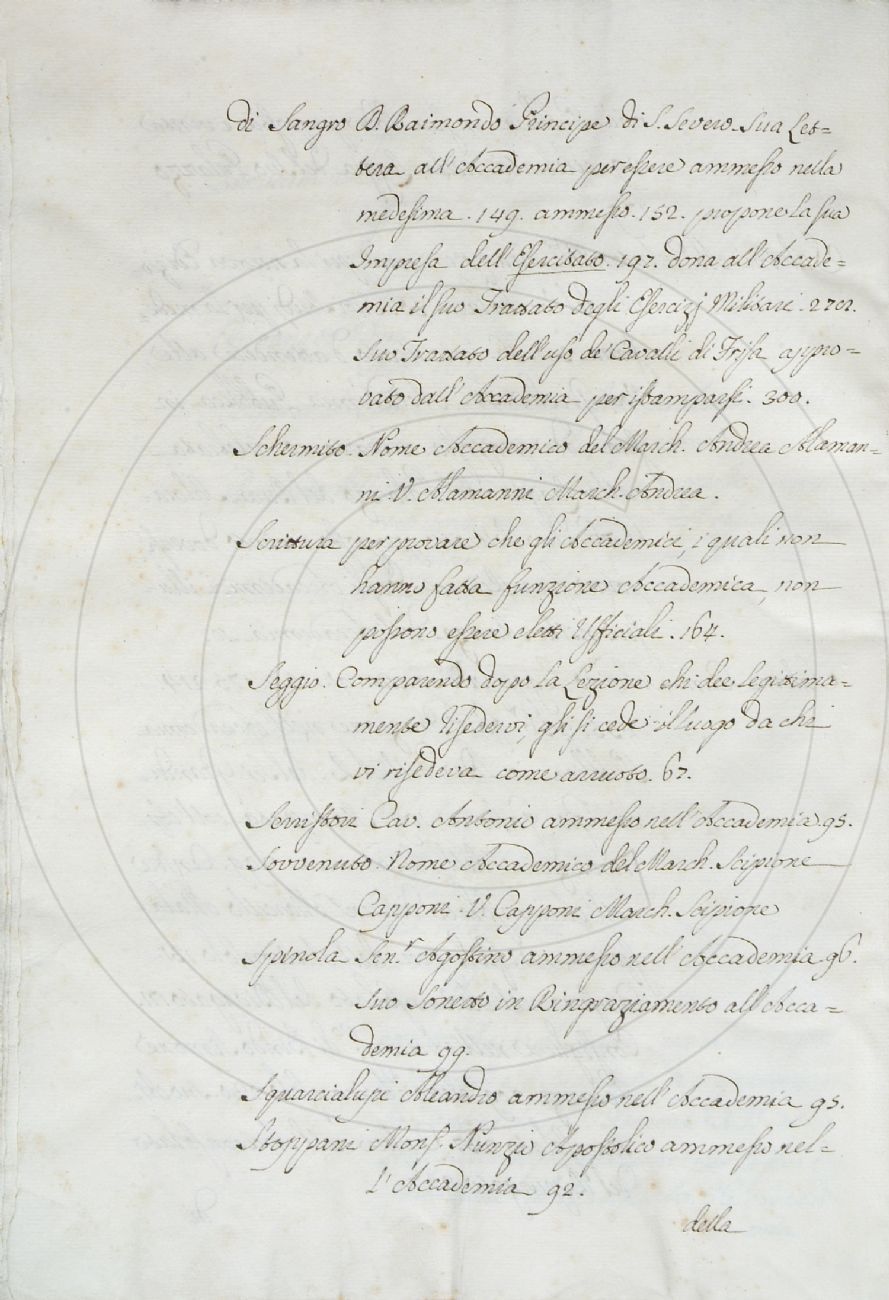 di Sangro D. Raimondo Principe di S. Severo. Sua Let=
tera all'Accademia per essere ammesso nella
medesima . 149. ammesso . 152. propone la sua
Impresa dell'Esercitato . 197. dona all'Accade=
mia il suo Trattato degli Esercizj Militari .
suo Trattato dell'uso de' Cavalli di Frisa appro=
vato dall'Accademia per istamparsi . 300.
Schermito. Nome Accademico del March. Andrea Alaman=
ni. V. Alamanni March. Andrea .
Scrittura per provare che gli Accademici, i quali non
hanno fatta funzione Accademica, non
possono essere eletti Uffiziali . 164.
Seggio. Comparendo dopo la Lezione chi dee legittima=
mente risedervi, gli si cede il luogo da chi
vi risedeva come arruoto . 67.
Serristori Cav. Antonio ammesso nell'Accademia 95.
Sovvenuto. Nome Accademico del March. Scipione
Capponi. V. Capponi March. Scipione
Spinola Sen.r Agostino ammesso nell'Accademia 96.
suo Sonetto in Ringraziamento all'Acca=
demia 99.
Squarcialupi Aleandro ammesso nell'Accademia 95.
Stoppani Mons. Nunzio Apostolico ammesso nel=
l'Accademia 92.
della